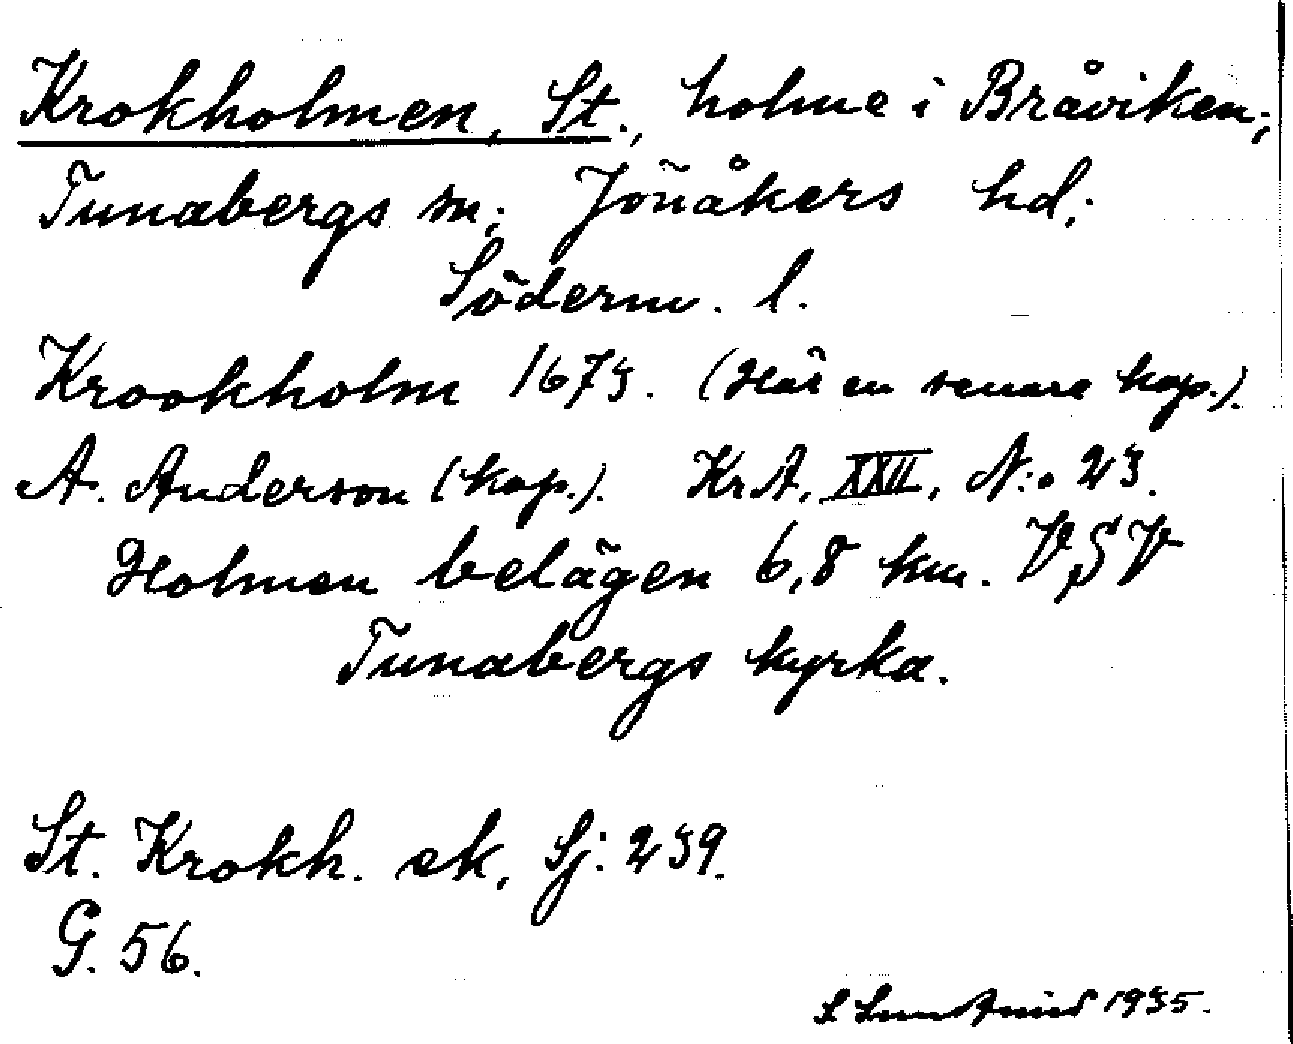 Krokholmen, St., holme i Bråviken;
Tunabergs sn; Jönåkers hd;
Söderm. l.
Krookholm 1673. (Här en senare kop.).
A. Anderson (kop.). KrA, XXII, N:o 23.
Holmen belägen 6,8 km. VSV
Tunabergs kyrka.
St. Krokh. ek, Sj: 239.
G. 56.
S 1935.